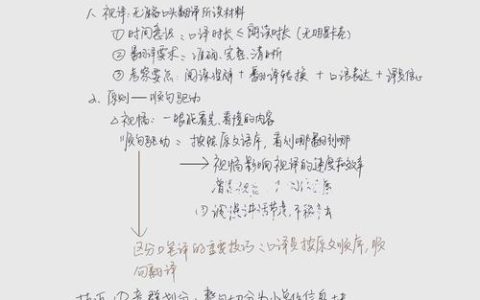 1. 视译:无准备口头翻译所读材料
① 时间意识:口译时长≤阅读时长(无明显卡壳)
② 翻译要求:准确、完整、清晰
③ 考察要点:阅读理解+翻译转换+口语表达+译员信心
2. 原则——顺句驱动
△视幅:一眼能看见、看懂的内容
顺句驱动:按照原文语序,看到哪翻到哪
→视幅影响视译的速度和效率
节奏,不能
区分口笔译的重要技巧:口译员按原文顺序,顺
句翻译
技巧 ① 意群划分,整句切分为小单位信息